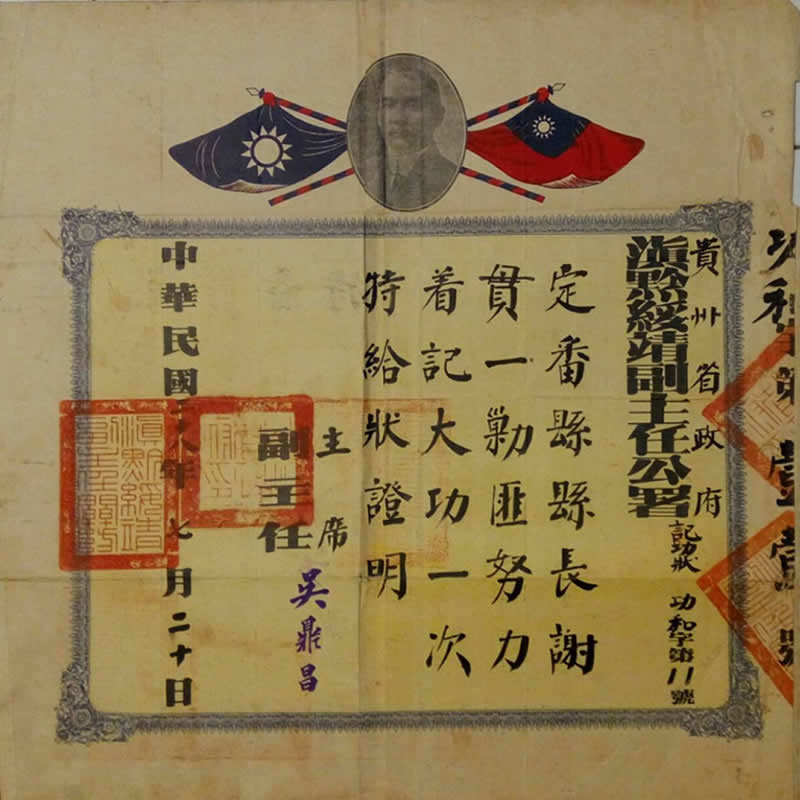 功和字第壹壹號
貴州省政府
滇黔綏靖副主任公署
記功狀 功和字第11號
定番縣縣長謝
貫一勦匪努力
着記大功一次
特給狀證明
主席
副主任
吳鼎昌
中華民國二十八年七月二十日